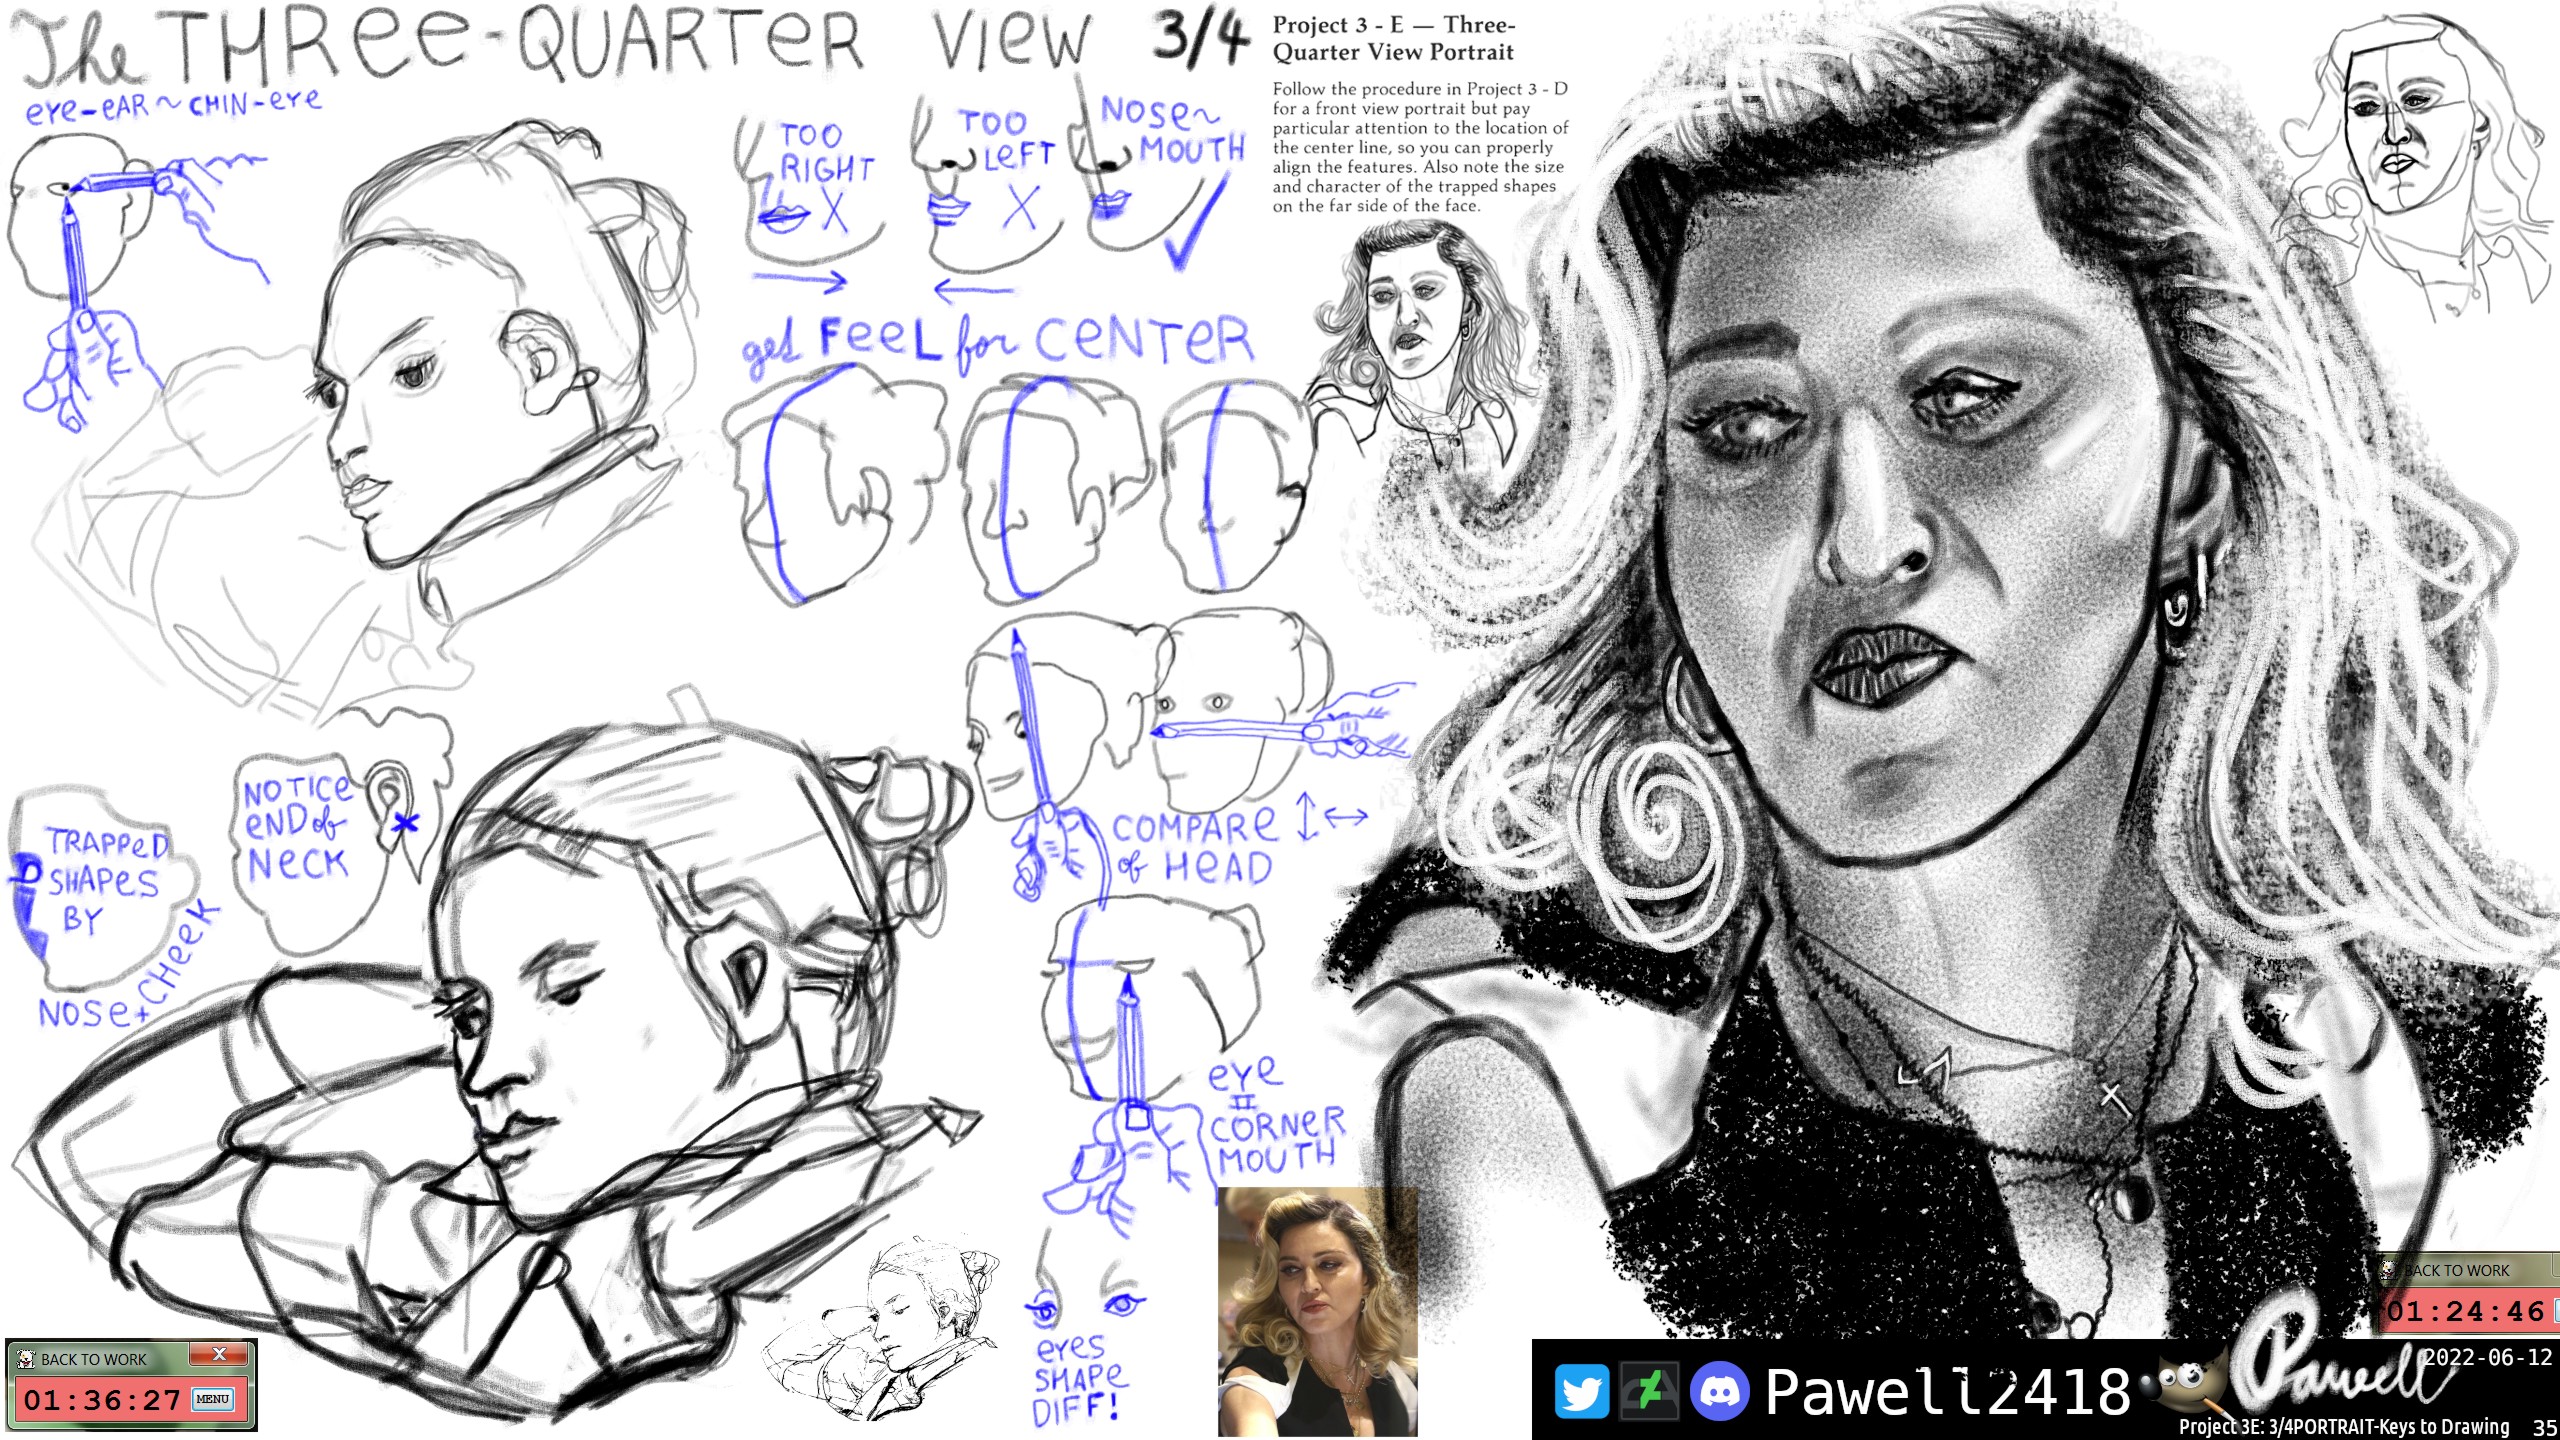 The THRee-QUARTER VIEW 3/4
eYe-eAR ~ CHIN-eYe
TOO
RIGHT
X
TOO
LeFT
X
NOSe~
MOUTH
get FeeL for CeNTeR
Project 3 - E — Three-
Quarter View Portrait
Follow the procedure in Project 3 - D
for a front view portrait but pay
particular attention to the location of
the center line, so you can properly
align the features. Also note the size
and character of the trapped shapes
on the far side of the face.
NOTICe
eND of
NeCK
TRAPPeD
SHAPeS
BY
NOSe+CHeeK
COMPARe
of HeAD
eYe
=
CORNeR
MOUTH
eYeS
SHAPe
DIFF!
BACK TO WORK
01:36:27 MENU
BACK TO WORK
01:24:46
Pawell2418
Pawell
2022-06-12
Project 3E: 3/4PORTRAIT-Keys to Drawing 35